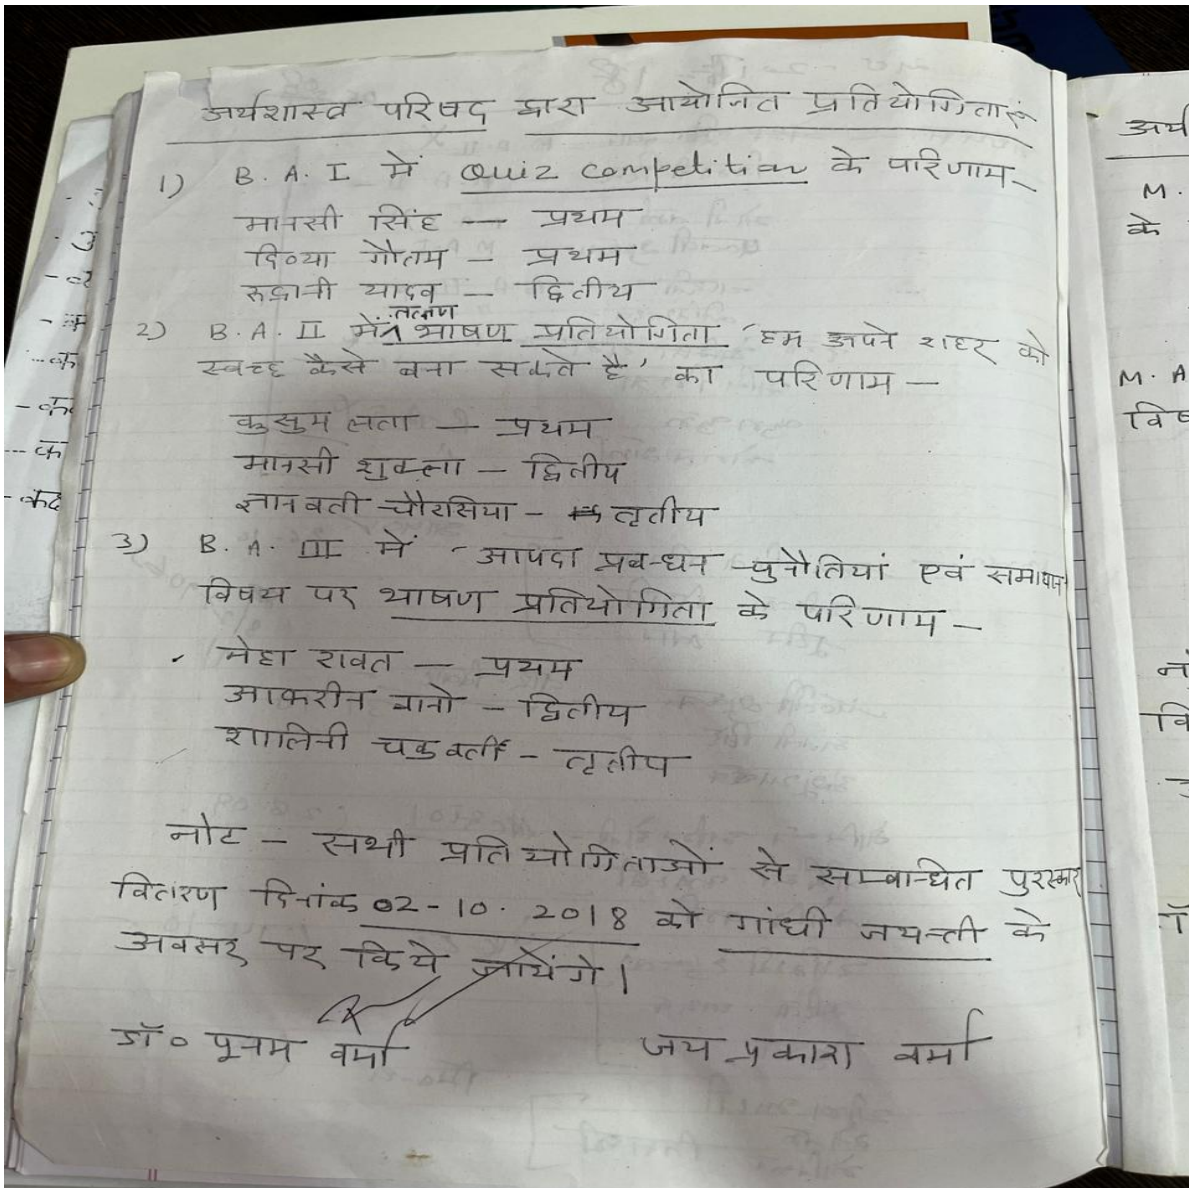 अर्थशास्त्र परिषद द्वारा आयोजित प्रतियोगिताएं
1) B. A. I में Quiz competition के परिणाम -
मानसी सिंह — प्रथम
दिव्या गौतम - प्रथम
रुद्रानी यादव — द्वितीय
तत्क्षण
2) B. A. II में भाषण प्रतियोगिता 'हम अपने शहर को
स्वच्छ कैसे बना सकते है' का परिणाम —
कुसुम लता — प्रथम
मानसी शुक्ला — द्वितीय
ज्ञानवती चौरसिया - तृतीय
3) B. A. III में - आपदा प्रबन्धन चुनौतियां एवं समाधान
विषय पर भाषण प्रतियोगिता के परिणाम —
नेहा रावत — प्रथम
आफरीन बानो - द्वितीय
शालिनी चक्रवर्ती - तृतीय
नोट - सभी प्रतियोगिताओं से सम्बन्धित पुरस्कार
वितरण दिनांक 02-10-2018 को गांधी जयन्ती के
अवसर पर किये जायेंगे।
डॉ० पूनम वर्मा जय प्रकाश वर्मा
अर्थ
M.
के
M. A
विष